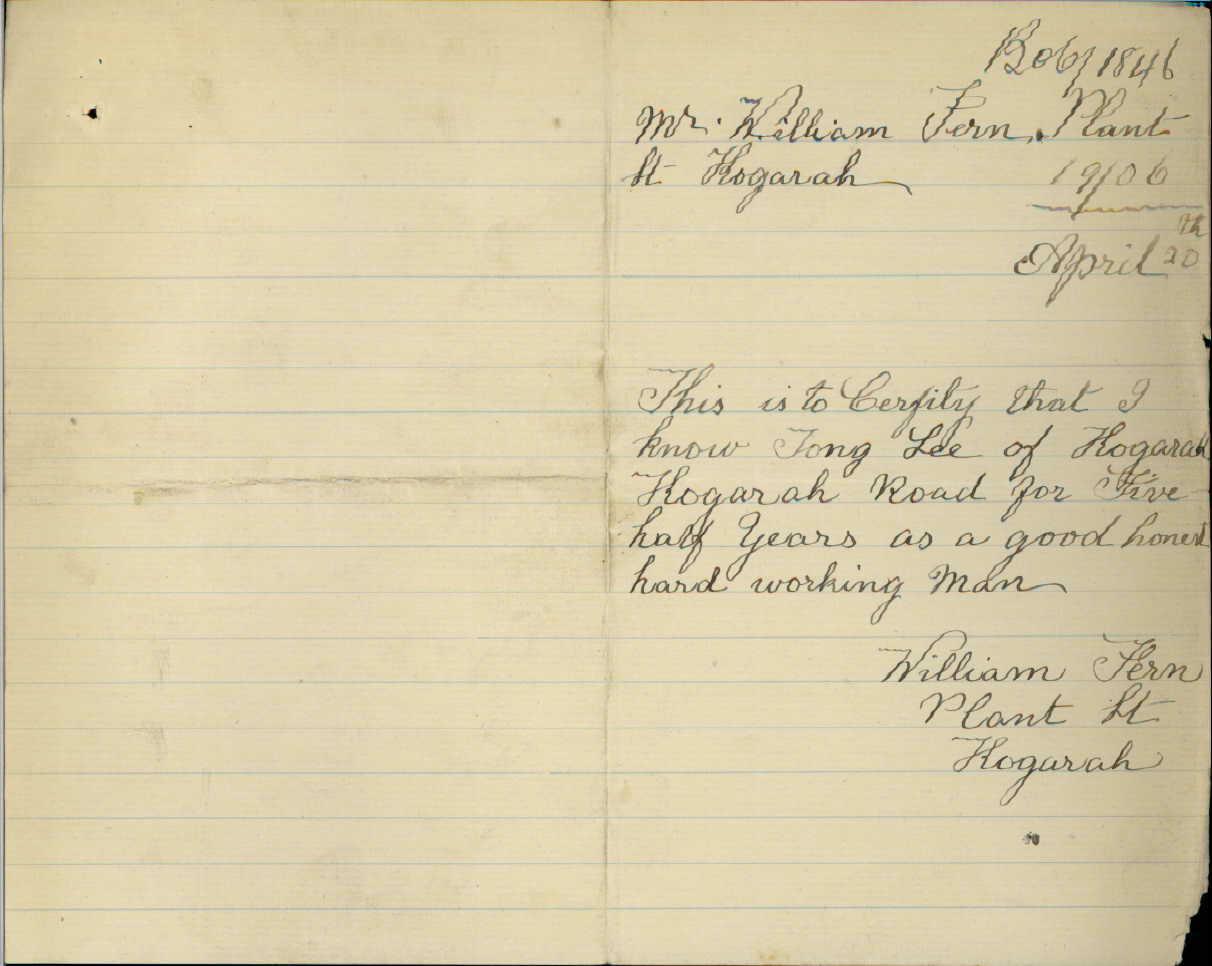 B06/1846
Mr. William Fern, Plant
St Kogarah
19/06
April 20th
This is to Cerfity that I
know Tong Lee of Kogarah
Kogarah Road for Five
half Years as a good honest
hard working Man
William Fern
Plant St
Kogarah